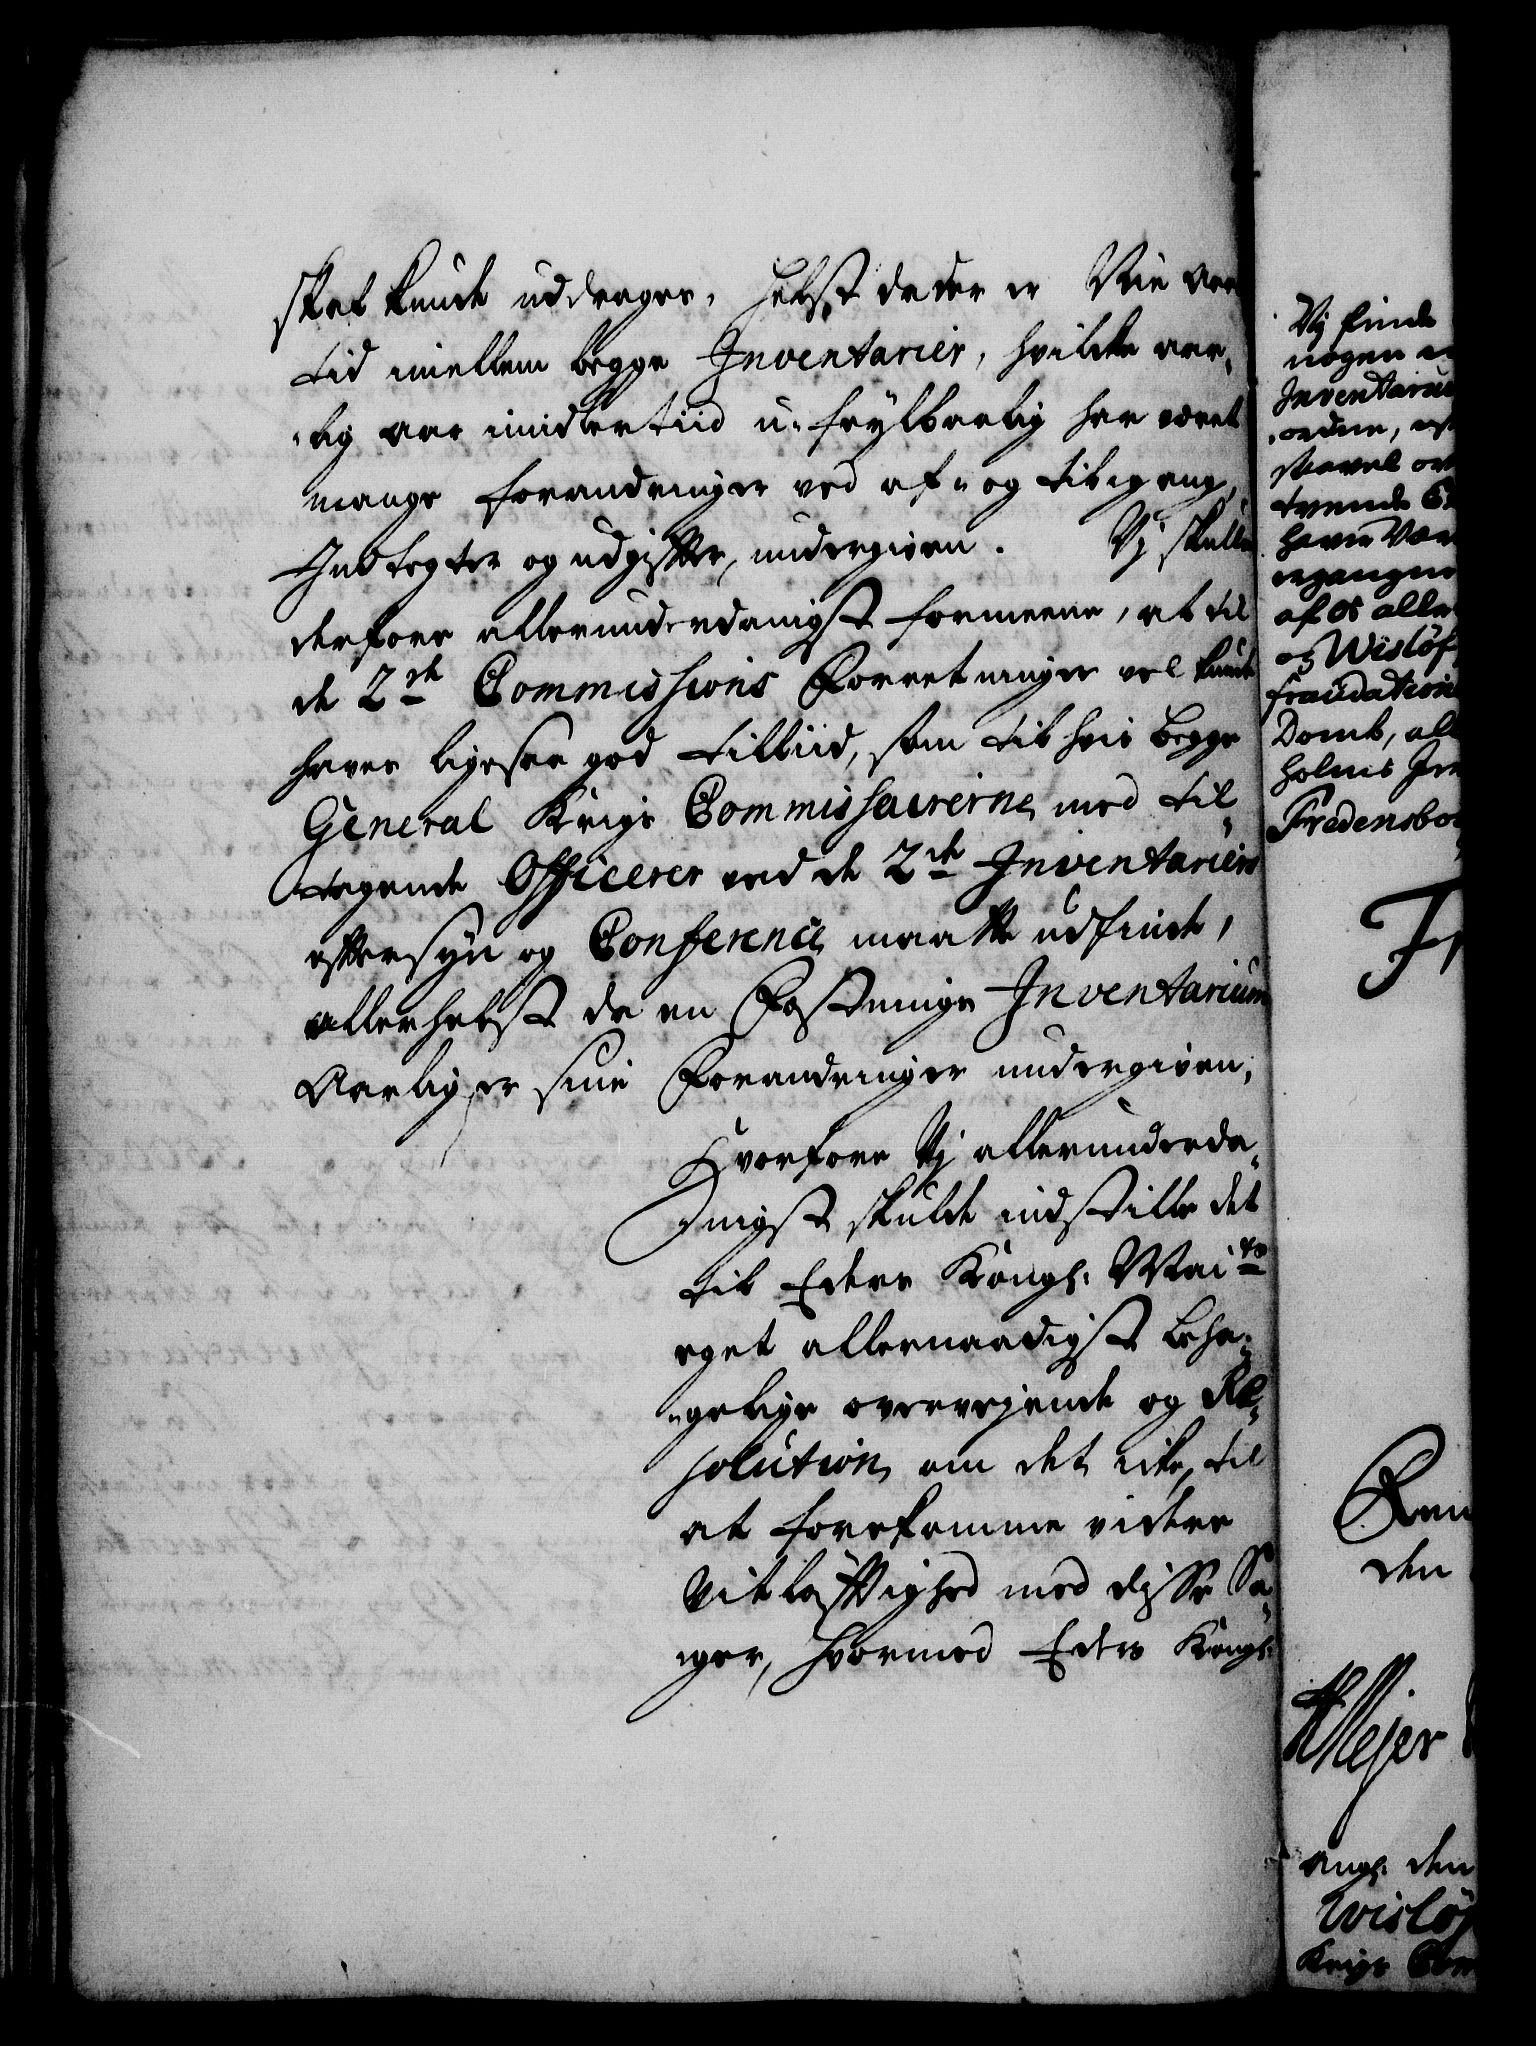 skat kunde uddrages, helst da der er Nie Aars
tid imellem begge Inventarier, hvilke aar¬
¬lig aar imidlertiid u-feylbarlig har været
mange forandringer ved af- og tilegang,
Indtegter og udgifter, undergiven. Vj skulle
derfore allerunderdanigst formeene, at til
de 2de Commissions Forretninger vel kunde
haves ligesaa god tilliid, som til hvis begge
General Krigs Commissairerne med til¬
tagende Officerer ved de 2de Inventariers
eftersyn og Conference maatte udfinde,
allerhelst da en Fæstnings Inventarium
Aarlig er sine Forandringer undergiven,
Hvorfore Vj allerunderda¬
nigst skulde indstille det
til Eders Kongl: Maits
eget allernaadigst beha¬
¬gelige overvejende og Re¬
solution, om det icke, til
at forekomme videre
Vitløftighed med disse Sa¬
ger, hvormed Eders Kongl:
Vj finde
nogen
Inventarium
ordne,
saavel
tvende
haver Vær
egangne
af os aller
og Wisløf
fraudation
Domb, all
holmis
Fredensbo
Fr
Ren
den
Mejer
Angl: den
Wisløf
Krigs Com